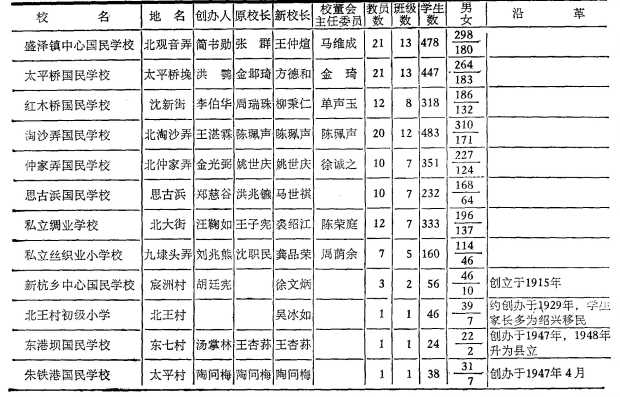 校 名 地 名 创办人 原校长 新校长 校董会主任委员 教员数 班级数 学生数 男 女 沿 革
盛泽镇中心国民学校 北观音弄 简书勋 张 群 王仲煊 马维成 21 13 478 298 180
太平桥国民学校 太平桥堍 洪 鹗 金邺琦 方德和 金 琦 21 13 447 264 183
红木桥国民学校 沈新街 李伯华 周瑞珠 柳秉仁 单声玉 12 8 318 186 132
淘沙弄国民学校 北淘沙弄 王湛霖 陈珮声 陈珮声 陈珮声 20 12 483 310 171
仲家弄国民学校 北仲家弄 金光弼 姚世庆 姚世庆 徐诚之 10 7 351 227 124
思古浜国民学校 思古浜 郑慈谷 洪兆 马世祺 10 7 232 168 64
私立绸业学校 北大街 汪鞠如 王子宪 裘绍江 陈荣庭 12 7 333 196 137
私立丝织业小学校 九埭头弄 刘兆熊 沈职民 龚品荣 周荫余 7 5 160 114 46
新杭乡中心国民学校 宸洲村 胡廷宪 徐文炳 3 2 56 46 10 创立于1915年
北王村初级小学 北王村 吴冰如 1 1 46 39 7 约创办于1929年，学生家长多为绍兴移民
东港坝国民学校 东七村 汤掌林 王杏荪 王杏荪 1 1 24 22 2 创办于1947年，1948年升为县立
朱铁港国民学校 太平村 陶问梅 陶问梅 陶问梅 1 1 38 31 7 创办于1947年4月